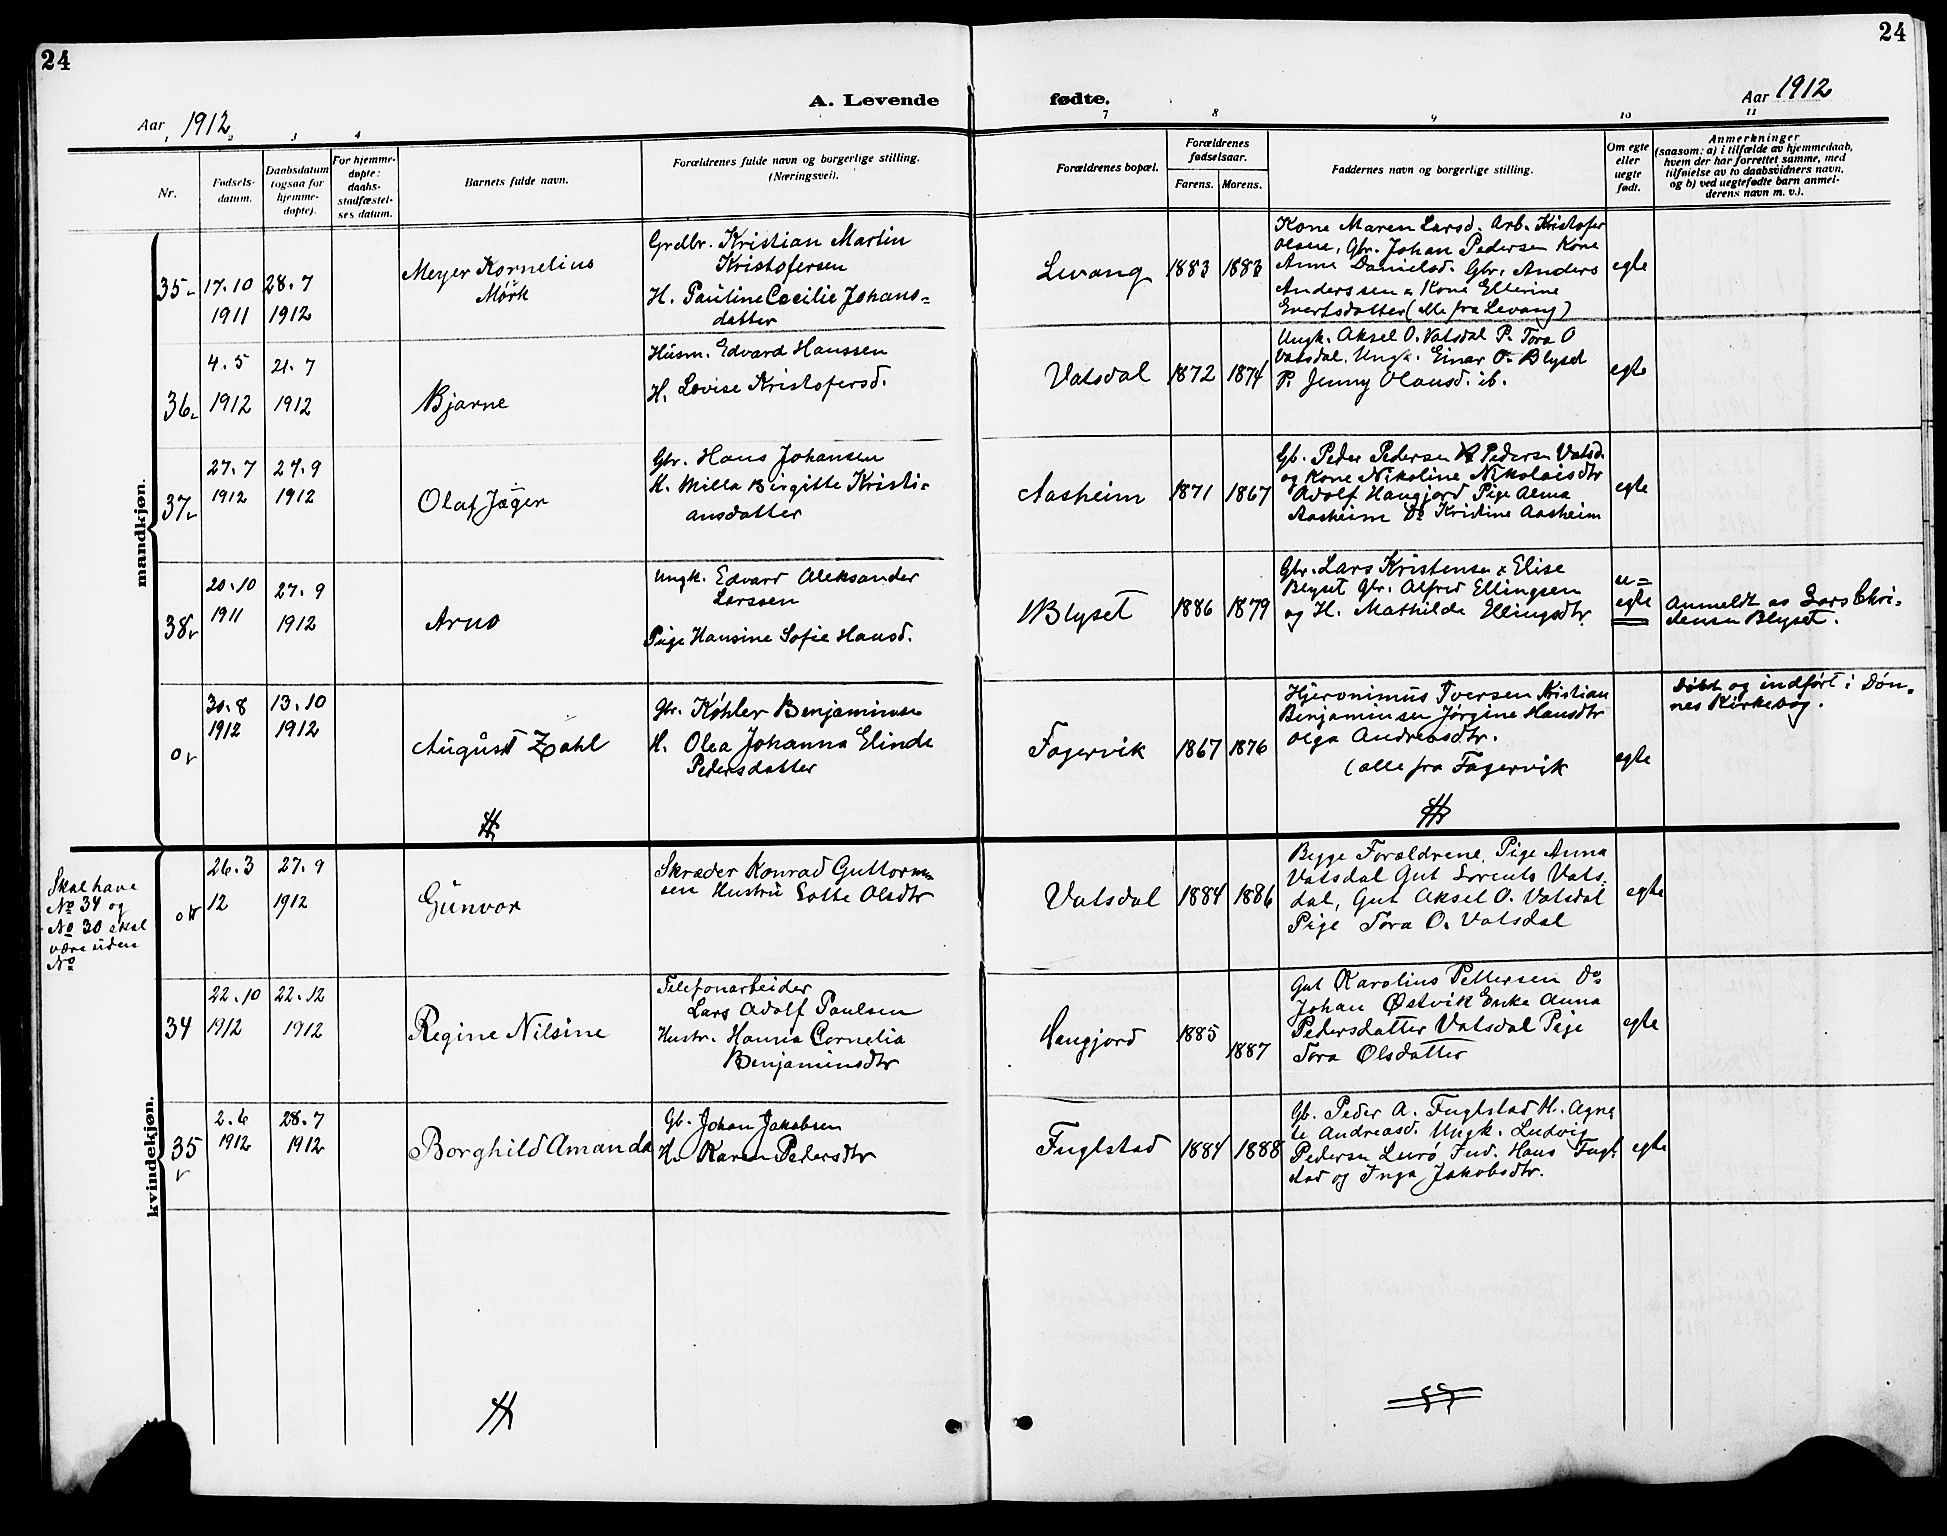 24
24
A. Levende
fødte.
Aar 1912
Aar 1912
1 2 3 4
7 8 9 10 11
Nr.
Fødsels-
datum.
Daabsdatum
(ogsaa for
hjemme-
døpte).
For hjemme-
døpte:
daabs-
stadfæstel-
ses datum.
Barnets fulde navn.
Forældrenes fulde navn og borgerlige stilling.
(Næringsvei).
Forældrenes bopæl.
Forældrenes
fødselsaar.
Farens. Morens.
Faddernes navn og borgerlige stilling.
Om egte
eller
uegte
født.
Anmerkninger
(saasom: a) i tilfælde av hjemmedaab,
hvem der har forrettet samme, med
tilføielse av to daabsvidners navn,
og b) ved uegtefødte barn anmel-
derens navn m. v.).
mandkjøn.
35
17.10
1911
28.7
1912
Meyer Kornelius
Mørk
Grdbr. Kristian Martin
Kristofersen
H. Pauline Cecilie Johans=
datter
Levang
1883
1883
Kone Maren Larsd. Arb. Kristofer
Olsen, Gbr. Johan Pedersen Kone
Anne Danielsd. Gbr. Anders
Anderssen & Kone Ellerine
Evertsdatter (alle fra Levang)
egte
36
4.5
1912
21.7
1912
Bjarne
Husm. Edvard Hanssen
H. Lovise Kristofersd.
Vatsdal
1872
1874
Ungk. Aksel O. Vatsdal P. Tora O
Vatsdal, Ungk. Einar O. Blyset
P. Jenny Olausd. ib.
egte
37
27.7
1912
27.9
1912
Olaf Jäger
Gbr. Hans Johansen
H. Milla Birgitte Kristi=
ansdatter
Aasheim
1871
1867
Gb. Peder Pedersen Pedersen Vatsd.
og Kone Nikoline Nikolaisdtr
Adolf Haugjord Pige Alma
Aasheim Do Kristine Aasheim
egte
38
20.10
1911
27.9
1912
Arno
Ungk. Edvard Aleksander
Larssen
Pige Hansine Sofie Hansd.
Blyset
1886
1879
Gbr. Lars Kristensen & Elise
Blyset Gbr. Alfred Ellingsen
og H. Mathilde Ellingsdtr
u=
egte
Anmeldt av Lars Chri-
stensen Blyset.
0
30.8
1912
13.10
1912
August Zahl
Gbr. Køhler Benjaminsen
H. Olea Johanna Elinde
Pedersdatter
Fagervik
1867
1876
Hjeronimus Iversen Kristian
Benjaminsen Jørgine Hansdtr
Olga Andreasdtr.
(alle fra Fagervik
egte
Døbt og indført i Døn-
nes Kirkebog.
kvindekjøn.
Skal have
No 34 og
No 30 skal
være uden
No
0
26.3
12
27.9
1912
Gunvor
Skræder Konrad Guttorm
sen Hustru Lotte Olsdtr
Vatsdal
1884
1886
Begge Forældrene, Pige Anna
Vatsdal Gut Lorents Vats.
dal, Gut Aksel O. Vatsdal
Pige Tora O. Vatsdal
egte
34
22.10
1912
22.12
1912
Regine Nilsine
Telefonarbeider
Lars Adolf Paulsen
Hustr. Hanna Cornelia
Benjaminsdtr
Haugjord
1885
1887
Gut Karolius Pettersen Do
Johan Østvik Enke Anna
Pedersdatter Vatsdal Pige
Tora Olsdatter
egte
35
2.6
1912
28.7
1912
Borghild Amanda
Gb. Johan Jakobsen
H. Karen Pedersdtr
Fuglstad
1884
1888
Gb. Peder A. Fuglstad H. Agne
te Andreasd. Ungk. Ludvig
Pedersen Lurö Hans Fugl
stad og Inga Jakobsdtr.
egte